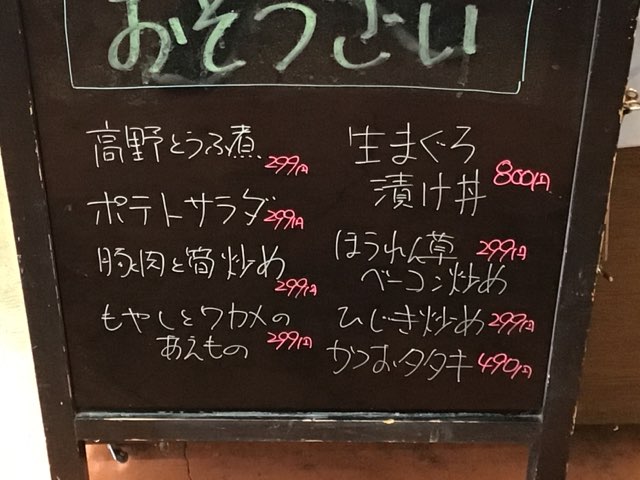 おそうざい
高野とうふ煮 299円
ポテトサラダ 299円
豚肉と筍炒め
299円
もやしとワカメの
あえもの 299円
生まぐろ
漬け丼 800円
ほうれん草 299円
ベーコン炒め
ひじき炒め 299円
かつおタタキ 490円